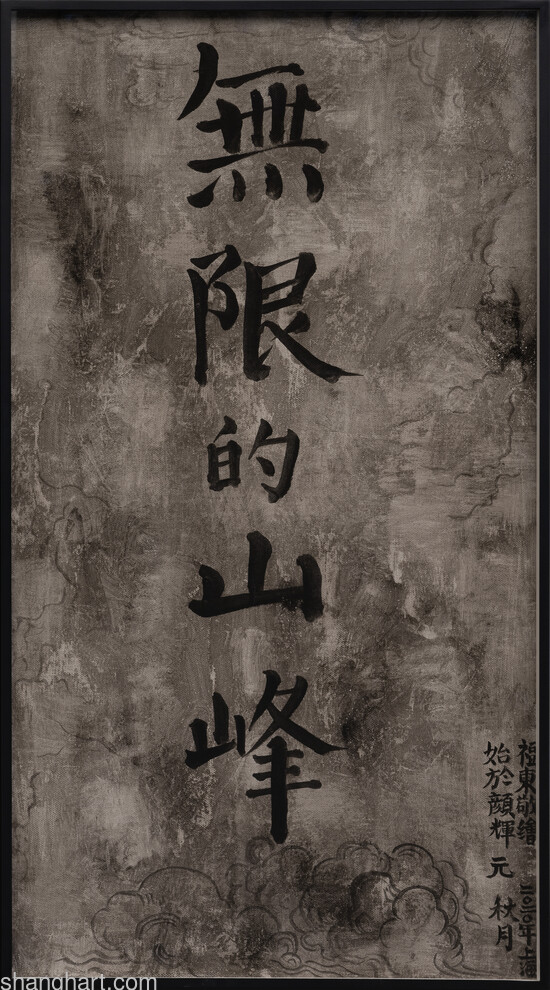 無限的山峰
福東敬繪 二〇二〇年 上海
始於顔輝 元 秋月
shanghart.com